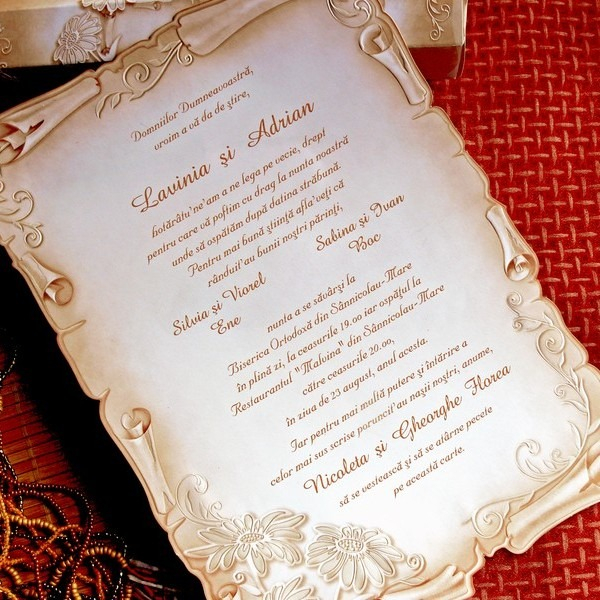 Domniilor Dumneavoastră,
vroim a vă da de ştire,
Lavinia şi Adrian
hotărâtu'ne'am a ne lega pe vecie, drept
pentru care vă poftim cu drag la nunta noastră
unde să ospătăm după datina străbună.
Pentru mai bună ştiinţă afla'veţi că
rânduit'au bunii noştri părinţi,
Sabina şi Ivan
Boc
Silvia şi Viorel
Ene
nunta a se săvârşi la
Biserica Ortodoxă din Sânnicolau-Mare
în plină zi, la ceasurile 19.00 iar ospăţul la
Restaurantul "Malvina" din Sânnicolau-Mare
către ceasurile 20.00,
în ziua de 23 august, anul acesta.
Iar pentru mai multă putere şi întărire a
celor mai sus scrise poruncit'au naşii noştri, anume,
Nicoleta şi Gheorghe Horea
să se vestească şi să se atârne pecete
pe această carte.